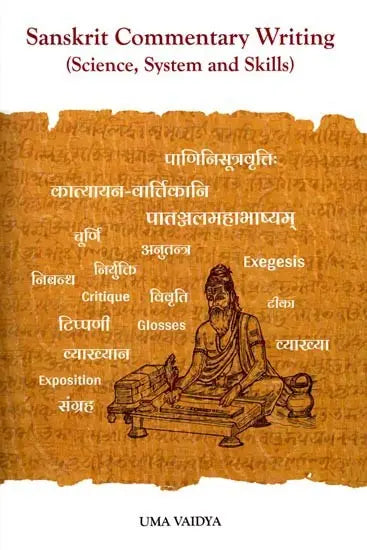 Sanskrit Commentary Writing
(Science, System and Skills)
पाणिनिसूत्रवृत्तिः
कात्यायन-वार्त्तिकानि
पातञ्जलमहाभाष्यम्
चूर्णि
अनुतन्त्र
निबन्ध
निर्युक्ति
Exegesis
Critique
विवृति
टीका
टिप्पणी
Glosses
व्याख्यान
व्याख्या
Exposition
संग्रह
UMA VAIDYA